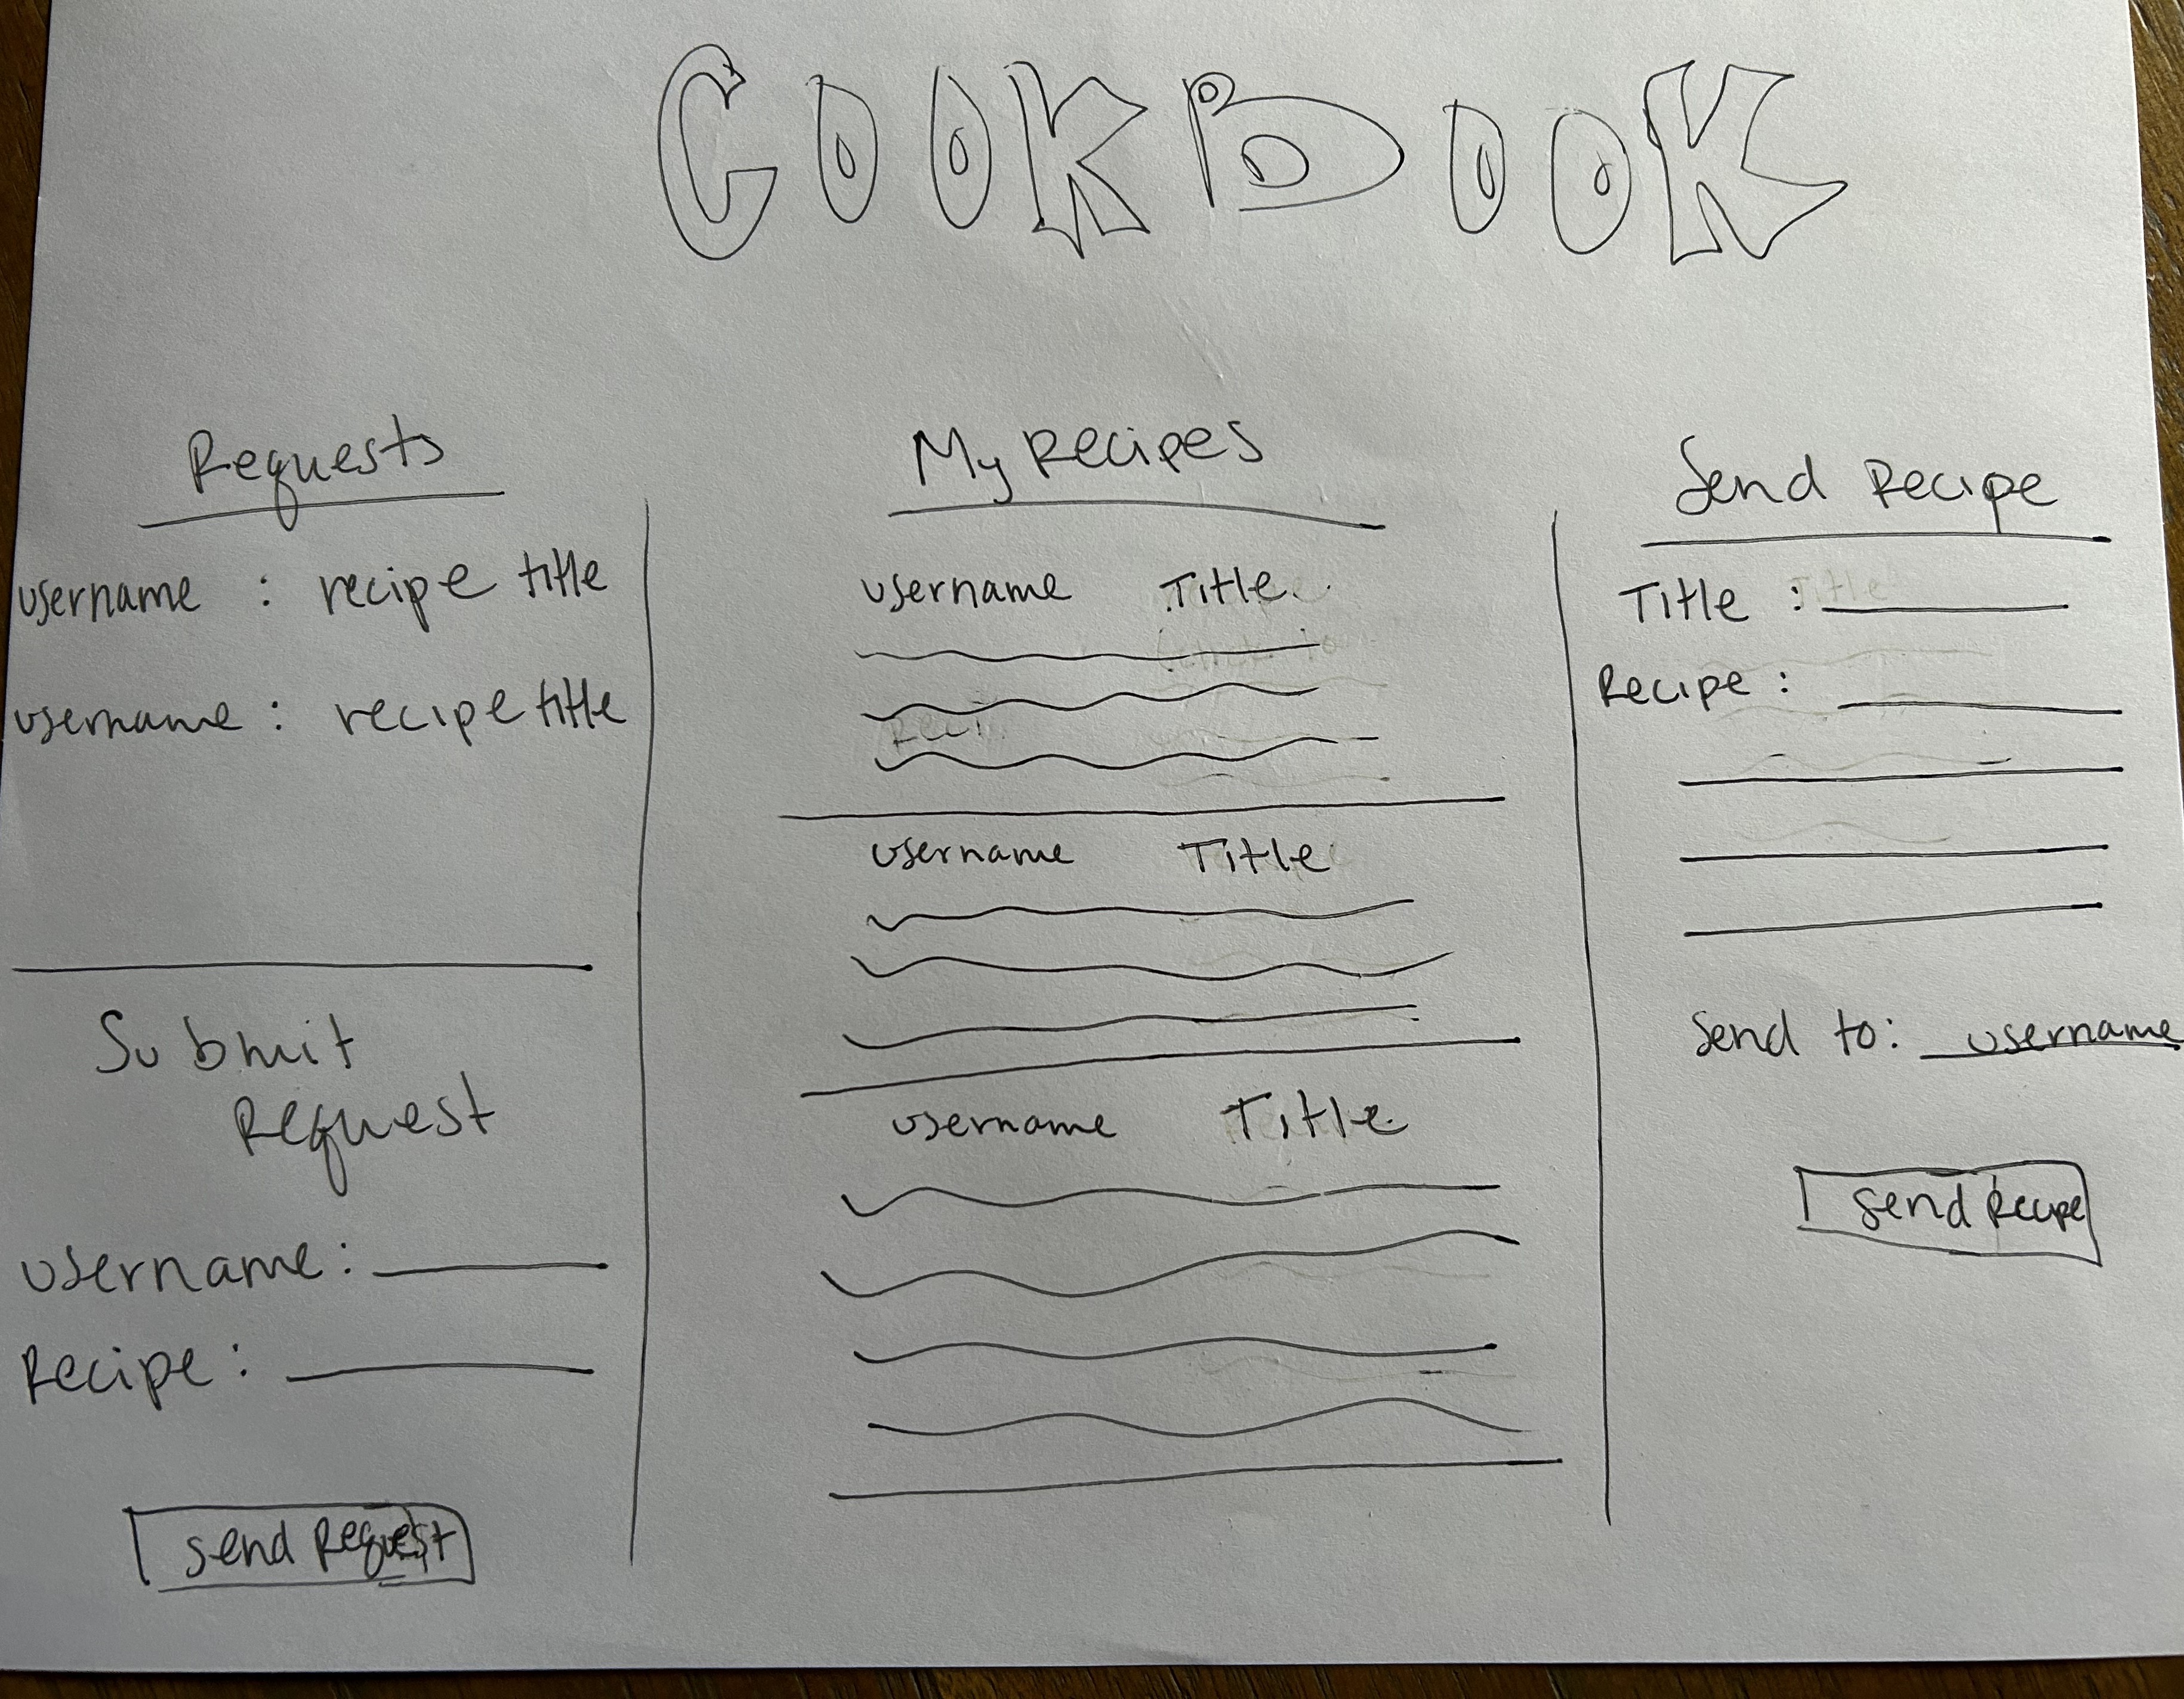 COOKBOOK
Requests
username : recipe title
username : recipe title
Submit
Request
username:
Recipe:
send Request
My Recipes
username Title
username Title
username Title
Send Recipe
Title :
Recipe :
Send to: username
send Recipe